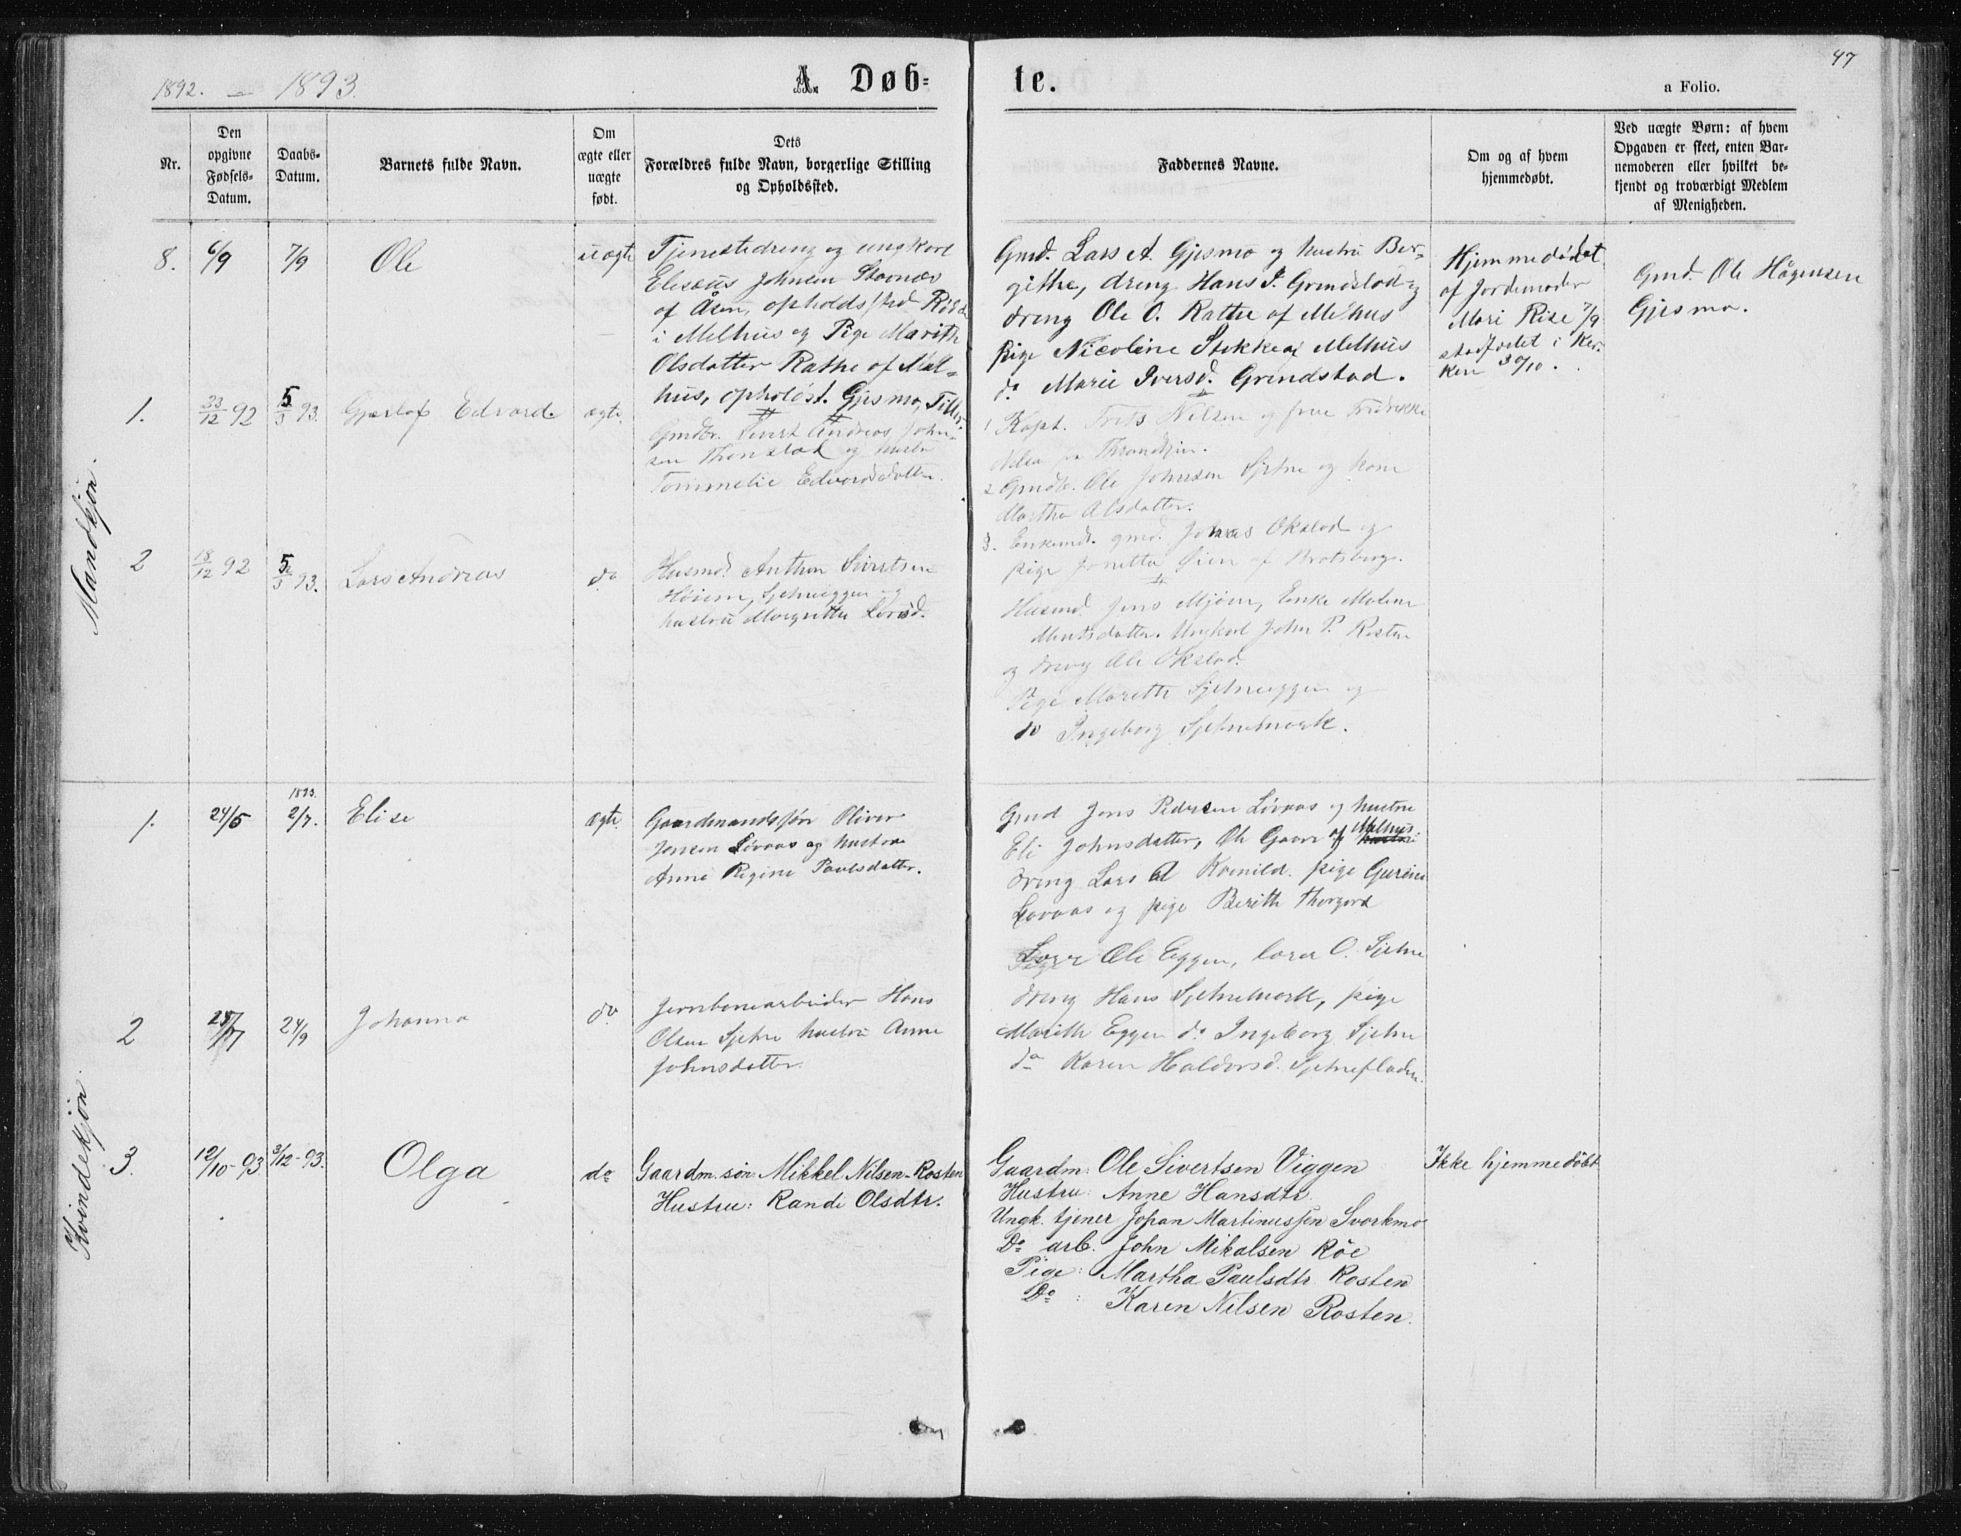 47
1892. — 1893.
A. Døb-
te.
a Folio.
Nr.
Den
opgivne
Fødsels-
Datum.
Daabs-
Datum.
Barnets fulde Navn.
Om
ægte eller
uægte
født.
Dets
Forældres fulde Navn, borgerlige Stilling
og Opholdssted.
Faddernes Navne.
Om og af hvem
hjemmedøbt.
Ved uægte Børn: af hvem
Opgaven er skeet, enten Bar-
nemoderen eller hvilket be-
kjendt og troværdigt Medlem
af Menigheden.
Mandkjøn.
8.
6/9
7/9
Ole
uægte
Tjenestedreng og ungkarl
Elisæus Johnsen
af Åsen, opholdssted
i Melhus og Pige Marith
Olsdatter Rathe of Mel-
hus, opholdst. Gjesmo, Tiller.
Gmd. Lars A. Gjesmo og hustru Ber-
githe, dreng Hans J. Grindstad og
dreng Ole O. Rathe af Melhus
pige Nicoline Stokke af Melhus
do Marie Iversd. Grindstad.
Hjemmedøbt
af Jordemoder
Mari Rise 7/9
stadfæstet i Kir-
ken 30/10.
Gmd. Ole Hågensen
Gjesmo.
1.
23/12 92
5/3 93.
Gjerlof Edvard
ægte.
Gmdbr. Sivert Andreas John-
sen Thonstad og hustru
Tommelie Edvardsdatter.
1 Kapt. Frits Nilsen og frue Fredrikke
Throndhjem.
2 Gmdb. Ole Johnsen Sjetne og kone
Martha Olsdatter.
3. Enkemd. gmd. Johnas Okstad og
pige Jonetta Øien af Bratsberg.
2
18/12 92
5/3 93.
Lars Andreas
do
Husmd. Anthon Sivertsen
Høiem, Sjetneeggen og
hustru Margrethe Larsd.
Husmd. Jens Mjøen, Enke Malene
datter. Ungkarl John P. Rosten
og dreng Ole Okstad.
Pige Marith Sjetneeggen og
do Ingeborg Sjetnemark.
Kvindekjøn.
1.
24/5
1893.
2/7.
Elise
ægte
Gaardmandssøn Oliver
Jensen Løvaas og hustru
Anne Regine Paulsdatter.
Gmd Jens Pedersen Løvaas og hustru
Eli Johnsdatter, Ole Gaare af Melhus.
dreng Lars A Kvenild. pige Gurine
Løvaas og pige Berith Thorgard
2
28/7
24/9
Johanna
do
Jernbanearbeider Hans
Olsen Sjetne hustru Anne
Johnsdatter.
Ole Eggen, O. Sjetne
dreng Hans Sjetnemark, pige
Marith Eggen do Ingeborg Sjetne
do Karen Haldorsd. Sjetnefladen.
3.
12/10-93.
3/12-93.
Olga
do
Gaardm. søn: Mikkel Nilsen-Rosten
Hustru: Randi Olsdtr.
Gaardm: Ole Sivertsen Viggen
Hustru: Anne Hansdtr.
Ungk. tjener Johan Martinussen Svorkmo
Do arb. John Mikalsen Røe
Pige: Martha Paulsdtr Rosten
Do: Karen Nilsen Rosten.
Ikke hjemmedøbt